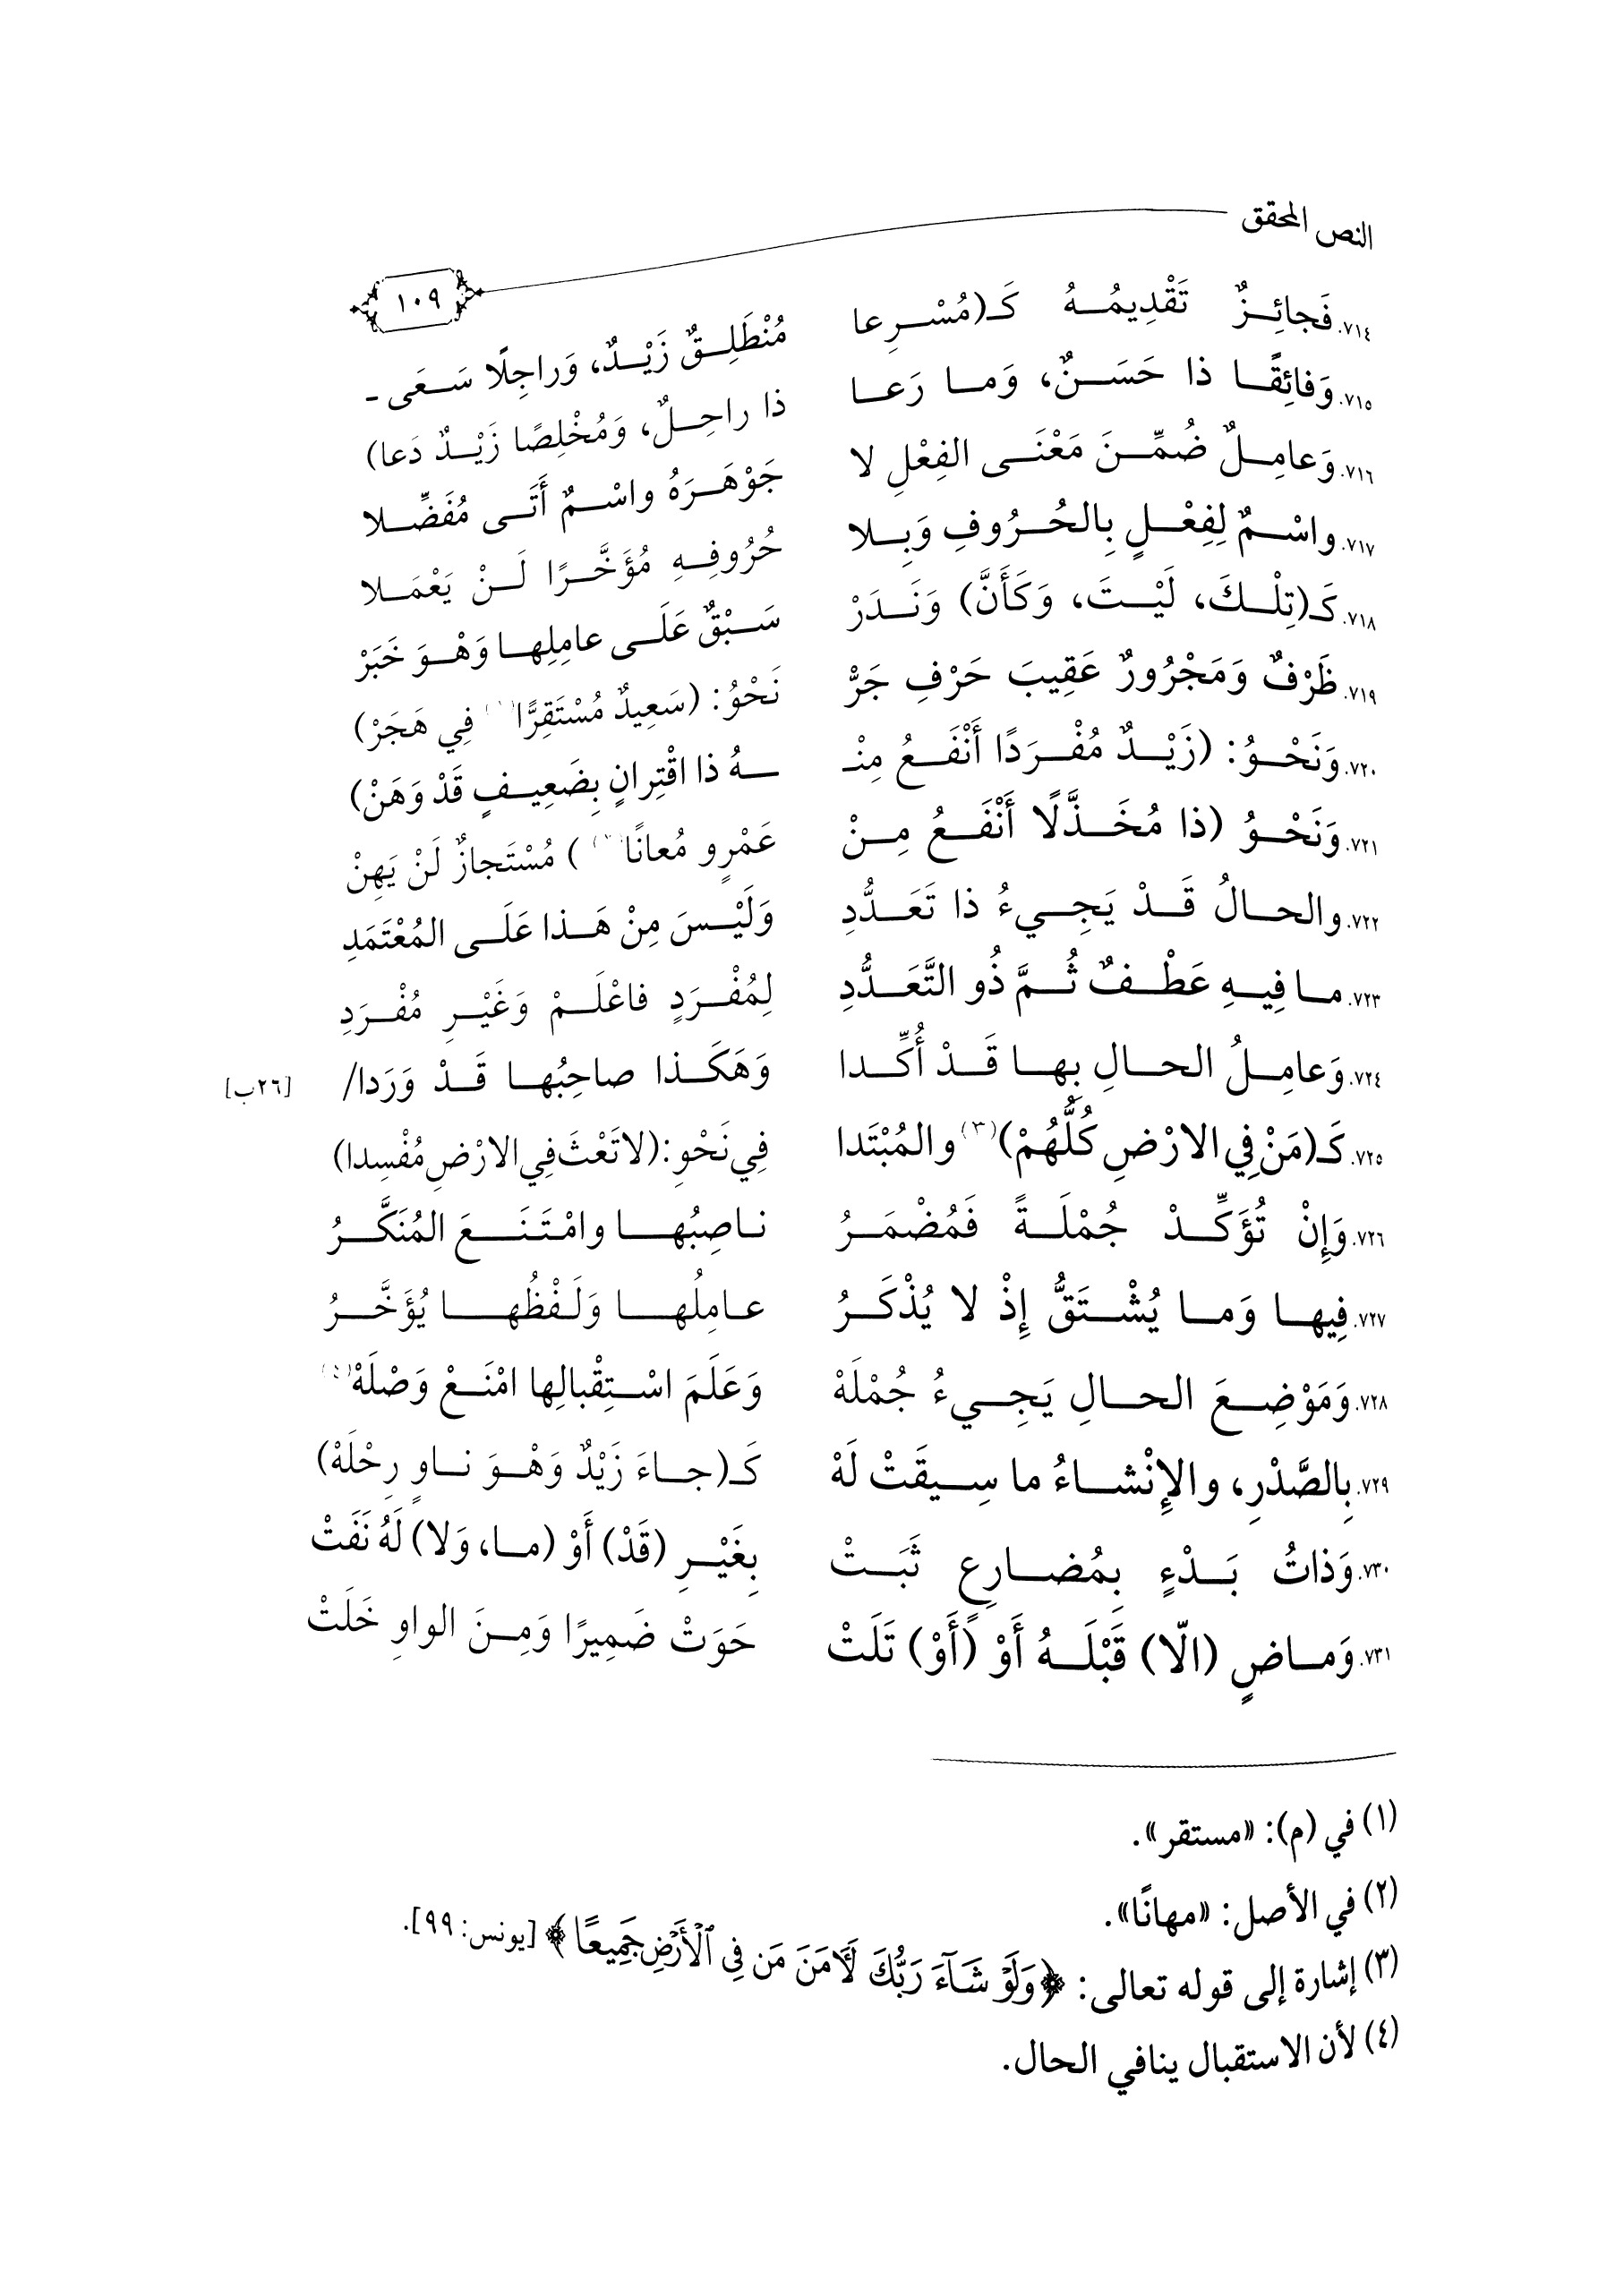 النص المحقق
١٠٩
٧١٤. فَجائِزٌ تَقْدِيمُهُ كَـ(مُسْرِعا مُنْطَلِقٌ زَيْدٌ، وَراجِلًا سَعَى -
٧١٥. وَفائِقًا ذا حَسَنٌ، وَما رَعا ذا راحِلٌ، وَمُخْلِصًا زَيْدٌ دَعا)
٧١٦. وَعامِلٌ ضُمِّنَ مَعْنَى الفِعْلِ لا جَوْهَرَهُ واسْمٌ أَتَى مُفَضِّلا
٧١٧. واسْمٌ لِفِعْلٍ بِالحُرُوفِ وَبِلا حُرُوفِهِ مُؤَخَّرًا لَنْ يَعْمَلا
٧١٨. كَـ(تِلْكَ، لَيْتَ، وَكَأَنَّ) وَنَدَرْ سَبْقٌ عَلَى عامِلِها وَهْوَ خَبَرْ
٧١٩. ظَرْفٌ وَمَجْرُورٌ عَقِيبَ حَرْفِ جَرّْ نَحْوُ: (سَعِيدٌ مُسْتَقِرًّا(١) فِي هَجَرْ)
٧٢٠. وَنَحْوُ: (زَيْدٌ مُفْرَدًا أَنْفَعُ مِنْـ ـهُ ذا اقْتِرانٍ بِضَعِيفٍ قَدْ وَهَنْ)
٧٢١. وَنَحْوُ (ذا مُخَذَّلًا أَنْفَعُ مِنْ عَمْرٍو مُعانًا(٢)) مُسْتَجازٌ لَنْ يَهِنْ
٧٢٢. والحالُ قَدْ يَجِيءُ ذا تَعَدُّدِ وَلَيْسَ مِنْ هَذا عَلَى المُعْتَمَدِ
٧٢٣. ما فِيهِ عَطْفٌ ثُمَّ ذُو التَّعَدُّدِ لِمُفْرَدٍ فاعْلَمْ وَغَيْرِ مُفْرَدِ
٧٢٤. وَعامِلُ الحالِ بِها قَدْ أُكِّدا وَهَكَذا صاحِبُها قَدْ وَرَدا/ [٢٦ب]
٧٢٥. كَـ(مَنْ فِي الارْضِ كُلُّهُمْ)(٣) والمُبْتَدا فِي نَحْوِ: (لا تَعْثَ فِي الارْضِ مُفْسِدا)
٧٢٦. وَإِنْ تُؤَكِّدْ جُمْلَةً فَمُضْمَرُ ناصِبُها وامْتَنَعَ المُنَكَّرُ
٧٢٧. فِيها وَما يُشْتَقُّ إِذْ لا يُذْكَرُ عامِلُها وَلَفْظُها يُؤَخَّرُ
٧٢٨. وَمَوْضِعَ الحالِ يَجِيءُ جُمْلَهْ وَعَلَمَ اسْتِقْبالِها امْنَعْ وَصْلَهْ(٤)
٧٢٩. بِالصَّدْرِ، والإِنْشاءُ ما سِيقَتْ لَهْ كَـ(جاءَ زَيْدٌ وَهْوَ ناوٍ رِحْلَهْ)
٧٣٠. وَذاتُ بَدْءٍ بِمُضارِعٍ ثَبَتْ بِغَيْرِ (قَدْ) أَوْ (ما، وَلا) لَهُ نَفَتْ
٧٣١. وَماضٍ (الّا) قَبْلَهُ أَوْ (أَوْ) تَلَتْ حَوَتْ ضَمِيرًا وَمِنَ الواوِ خَلَتْ
(١) في (م): «مستقر».
(٢) في الأصل: «مهانًا».
(٣) إشارة إلى قوله تعالى: ﴿وَلَوْ شَآءَ رَبُّكَ لَأٓمَنَ مَن فِى ٱلْأَرْضِ جَمِيعًا﴾ [يونس: ٩٩].
(٤) لأن الاستقبال ينافي الحال.